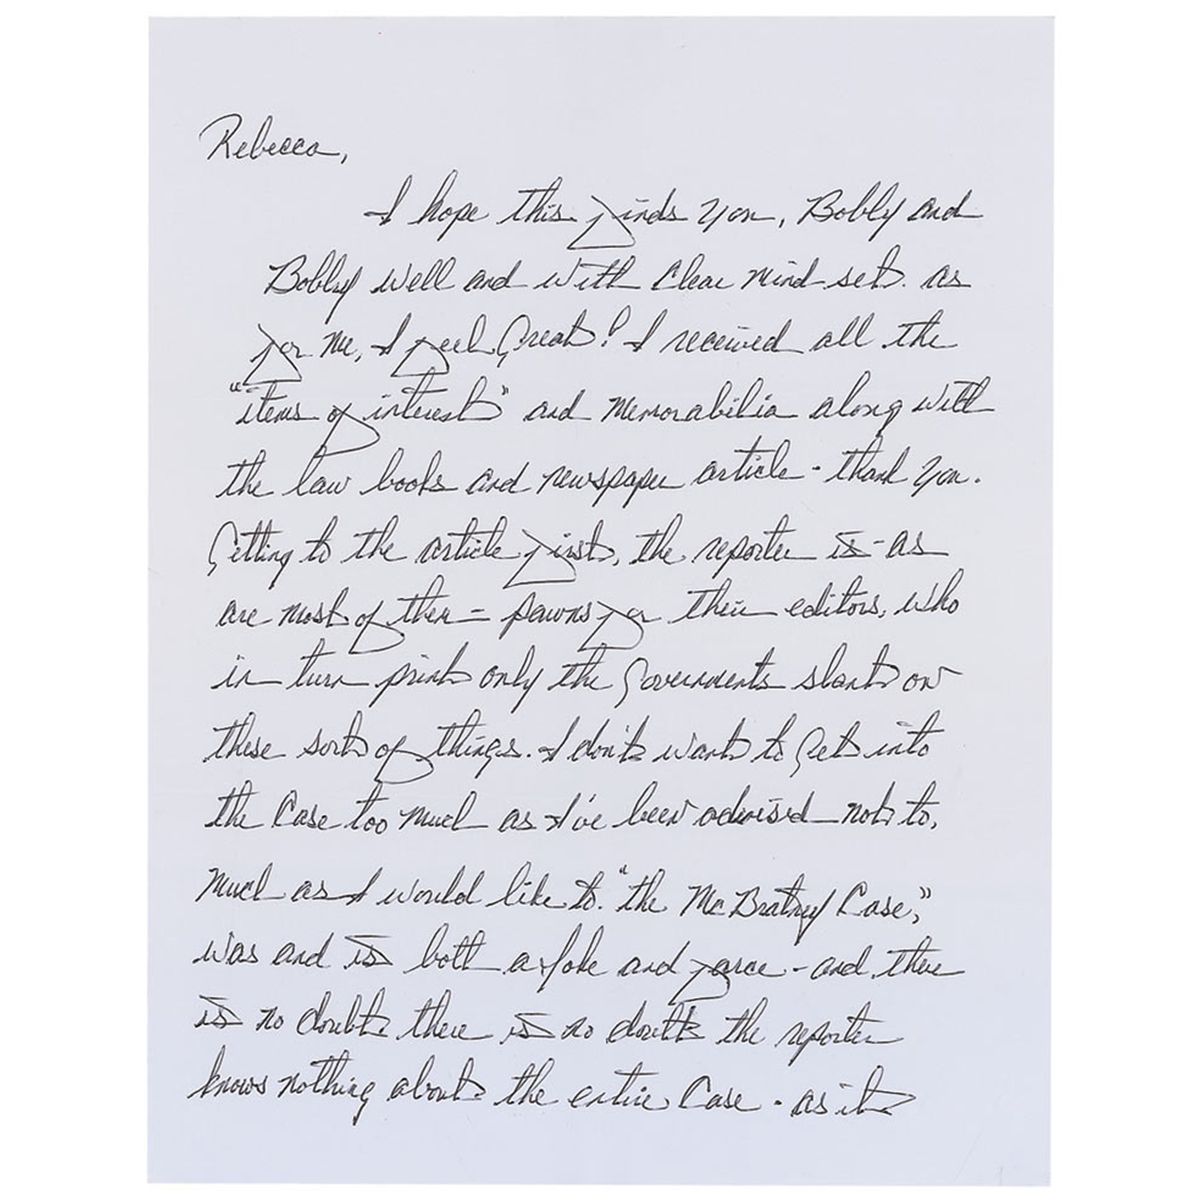 Rebecca,
I hope this finds you, Bobby and
Bobby well and with clear mind set. as
for me, I feel Great! I received all the
"items of interest" and memorabilia along with
the law books and newspaper article - thank you.
Getting to the article first, the reporter is - as
are most of them - pawns for their editors, who
in turn print only the Governments slant on
these sort of things. I don't want to get into
the case too much as I've been advised not to,
much as I would like to. "the McBratney Case,"
was and is both a joke and farce - and there
is no doubt there is no doubt the reporter
knows nothing about the entire case - as it